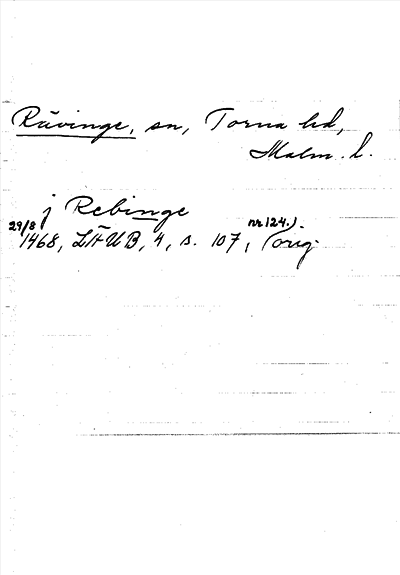 Rävinge, sn, Torna hd,
Malm. l.
j Rebinge
29/8 1468, LÄUB, 4, s. 107, (orig.
nr 124.).